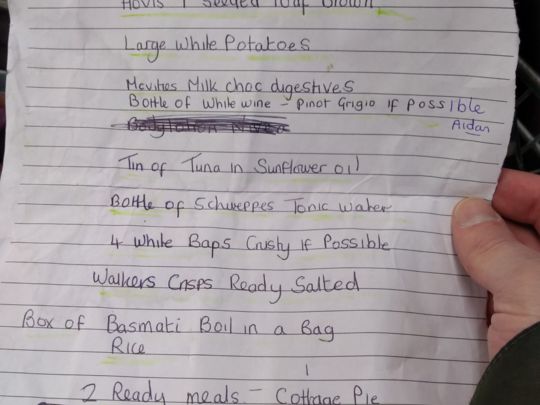 Hovis 1 Seeded loaf Brown
Large White Potatoes
Mcvities Milk choc digestives
Bottle of White wine - Pinot Grigio If possible
Aidan
Bodylotion Nivea
Tin of Tuna in Sunflower oil
Bottle of Schweppes Tonic Water
4 White Baps Crusty If Possible
Walkers Crisps Ready Salted
Box of Basmati Boil in a Bag
Rice
1
2 Ready meals - Cottage Pie